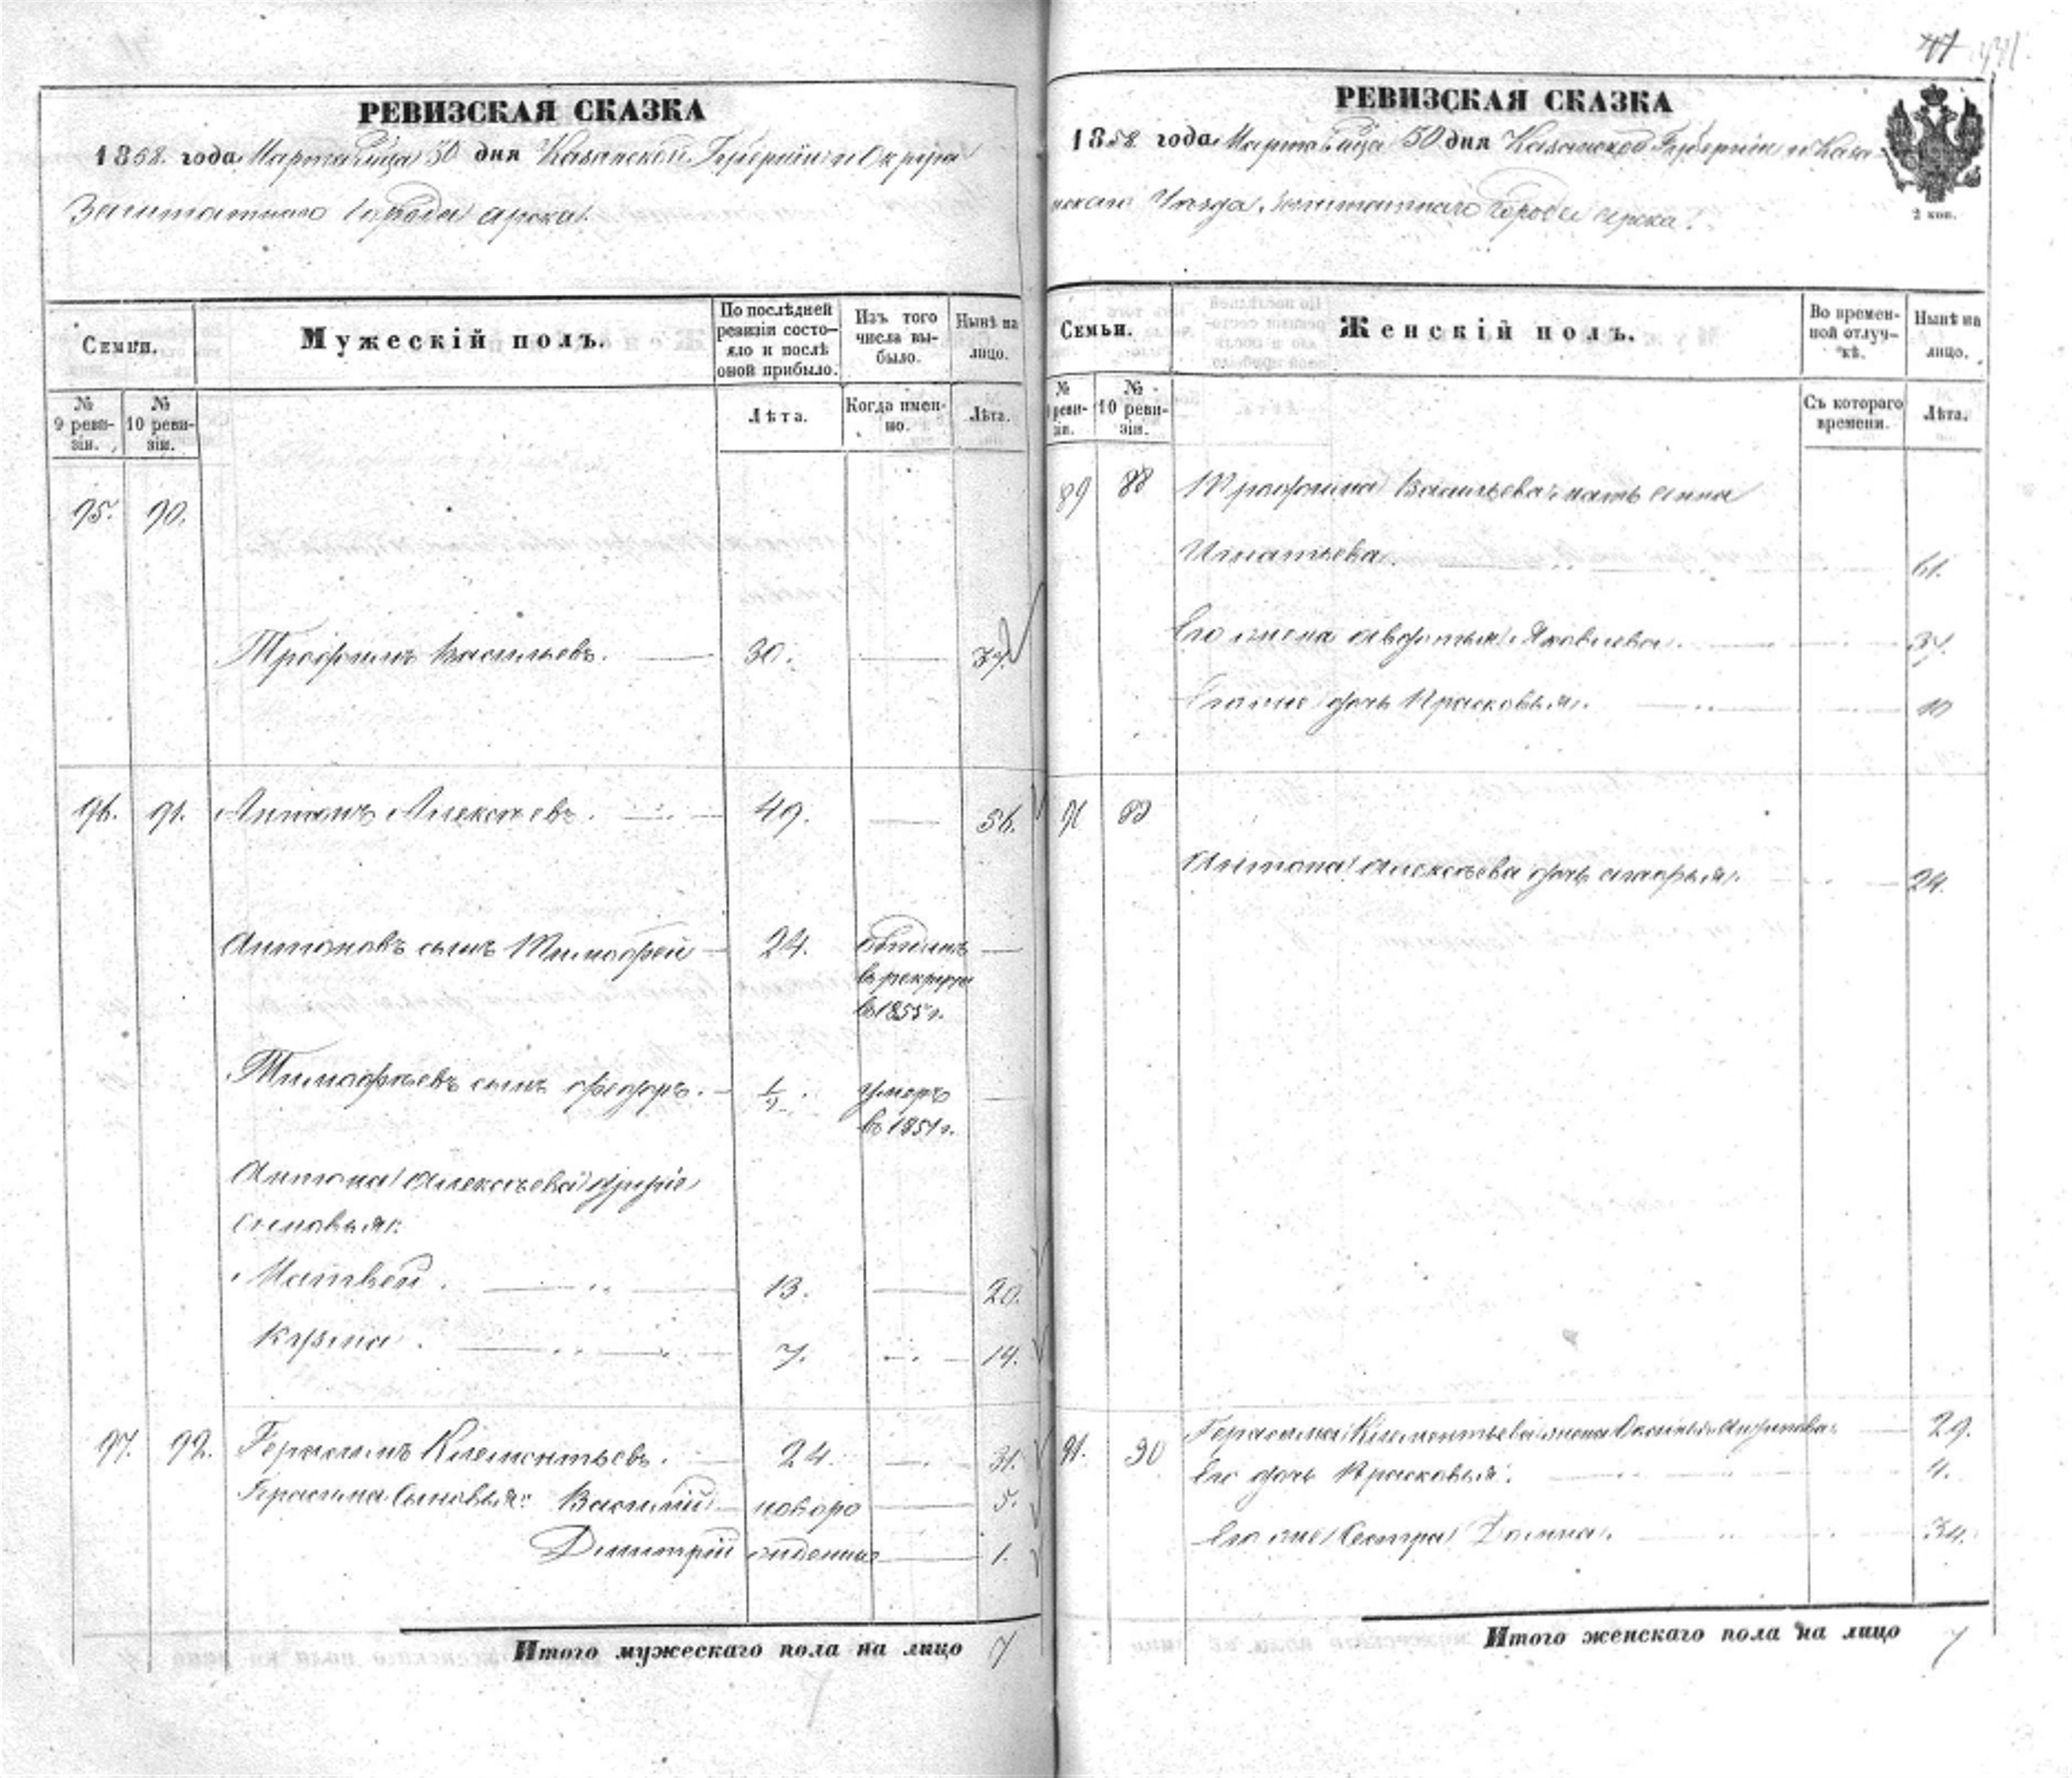 РЕВИЗСКАЯ СКАЗКА
1858 года Марта м-ца 30 дня Казанской Губерніи и Округа
Заштатнаго города Арска.
Семьи.
Мужескій полъ.
По послѣдней ревизіи состояло и послѣ оной прибыло.
Изъ того числа выбыло.
Нынѣ на лицо.
№ 9 ревизіи.
№ 10 ревизіи.
Лѣта.
Когда именно.
Лѣта.
95. 90.
Трофимъ Васильевъ. 30. 37.
96. 91. Антонъ Алексѣевъ. 49. 56.
Антоновъ сынъ Тимофей 24. отданъ
въ рекруты
въ 1855 г.
Тимофѣевъ сынъ Федоръ. умеръ
въ 1851 г.
Антона Алексѣева другіе
сыновья:
Матвей. 13. 20.
Кузма. 7. 14.
97. 92. Герасимъ Клементьевъ. 24. 31.
Герасима Сыновья: Василій новоро 5.
Димитрій жденные 1.
Итого мужескаго пола на лицо 7
РЕВИЗСКАЯ СКАЗКА
2 коп.
1858 года Марта м-ца 30 дня Казанской Губерніи и Каза
нскаго Уѣзда, заштатнаго города Арска.
Семьи.
Женскій полъ.
Во временной отлучкѣ.
Нынѣ на лицо.
№ 9 ревизіи.
№ 10 ревизіи.
Съ котораго времени.
Лѣта.
89 88 Трофима Васильева мать Анна
Игнатьева. 61.
Его жена Авдотья Яковлева. 37.
Его же дочь Прасковья. 10
89
Антона Алексѣева дочь Марья. 24.
91. 90 Герасима Клементьева жена 29.
Его дочь Прасковья. 4.
Его же Сестра Домна. 34.
Итого женскаго пола на лицо 7